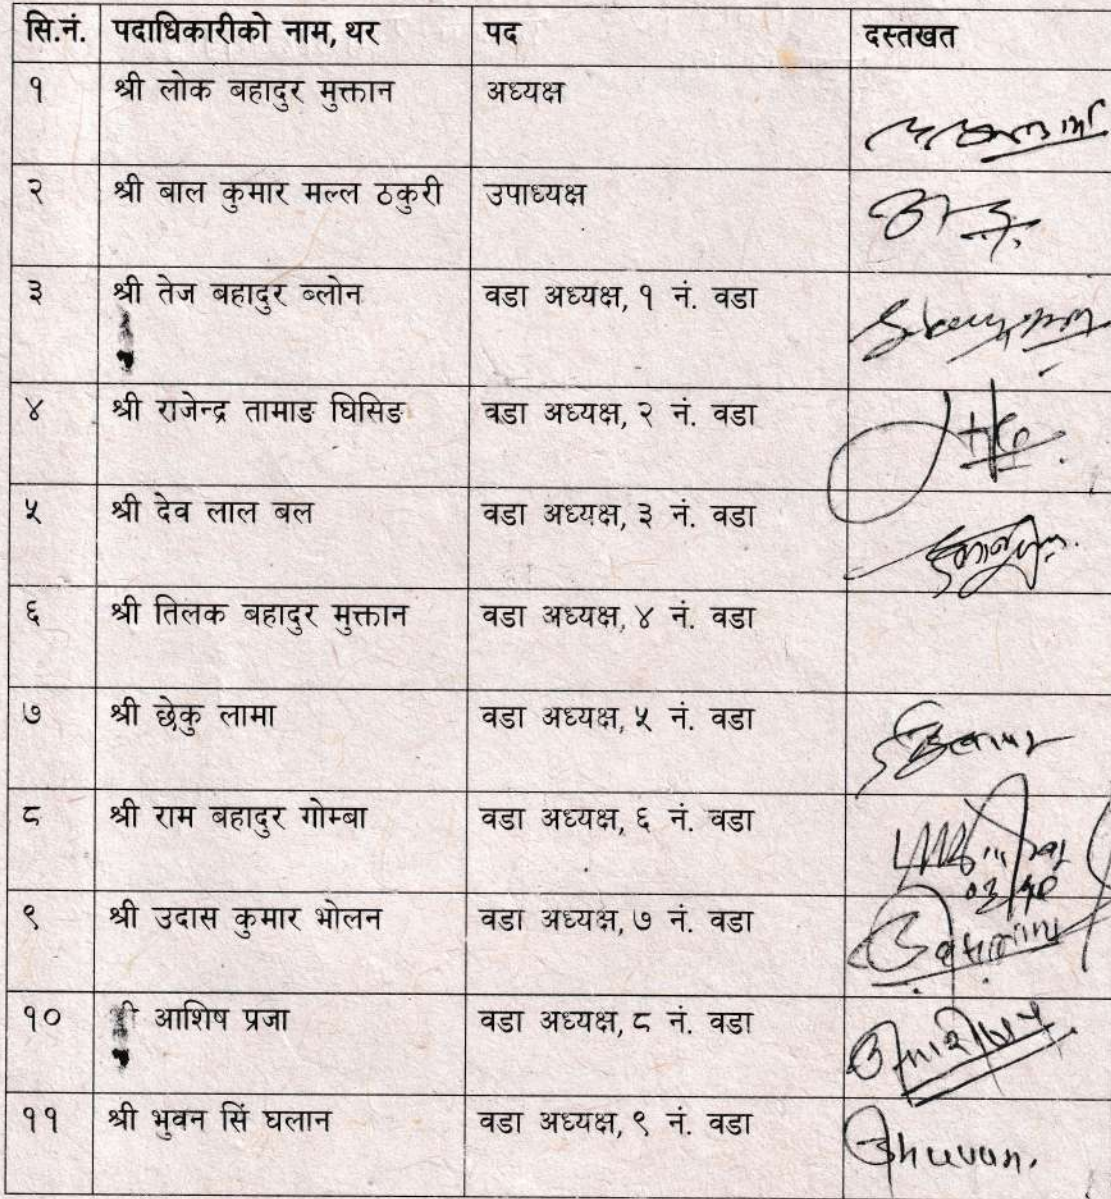 सि.नं. पदाधिकारीको नाम, थर पद दस्तखत
१ श्री लोक बहादुर मुक्तान अध्यक्ष
२ श्री बाल कुमार मल्ल ठकुरी उपाध्यक्ष
३ श्री तेज बहादुर ब्लोन वडा अध्यक्ष, १ नं. वडा
४ श्री राजेन्द्र तामाङ घिसिङ वडा अध्यक्ष, २ नं. वडा
५ श्री देव लाल बल वडा अध्यक्ष, ३ नं. वडा
६ श्री तिलक बहादुर मुक्तान वडा अध्यक्ष, ४ नं. वडा
७ श्री छेकु लामा वडा अध्यक्ष, ५ नं. वडा
८ श्री राम बहादुर गोम्बा वडा अध्यक्ष, ६ नं. वडा
९ श्री उदास कुमार भोलन वडा अध्यक्ष, ७ नं. वडा
१० श्री आशिष प्रजा वडा अध्यक्ष, ८ नं. वडा
११ श्री भुवन सिं घलान वडा अध्यक्ष, ९ नं. वडा Bhuvan.